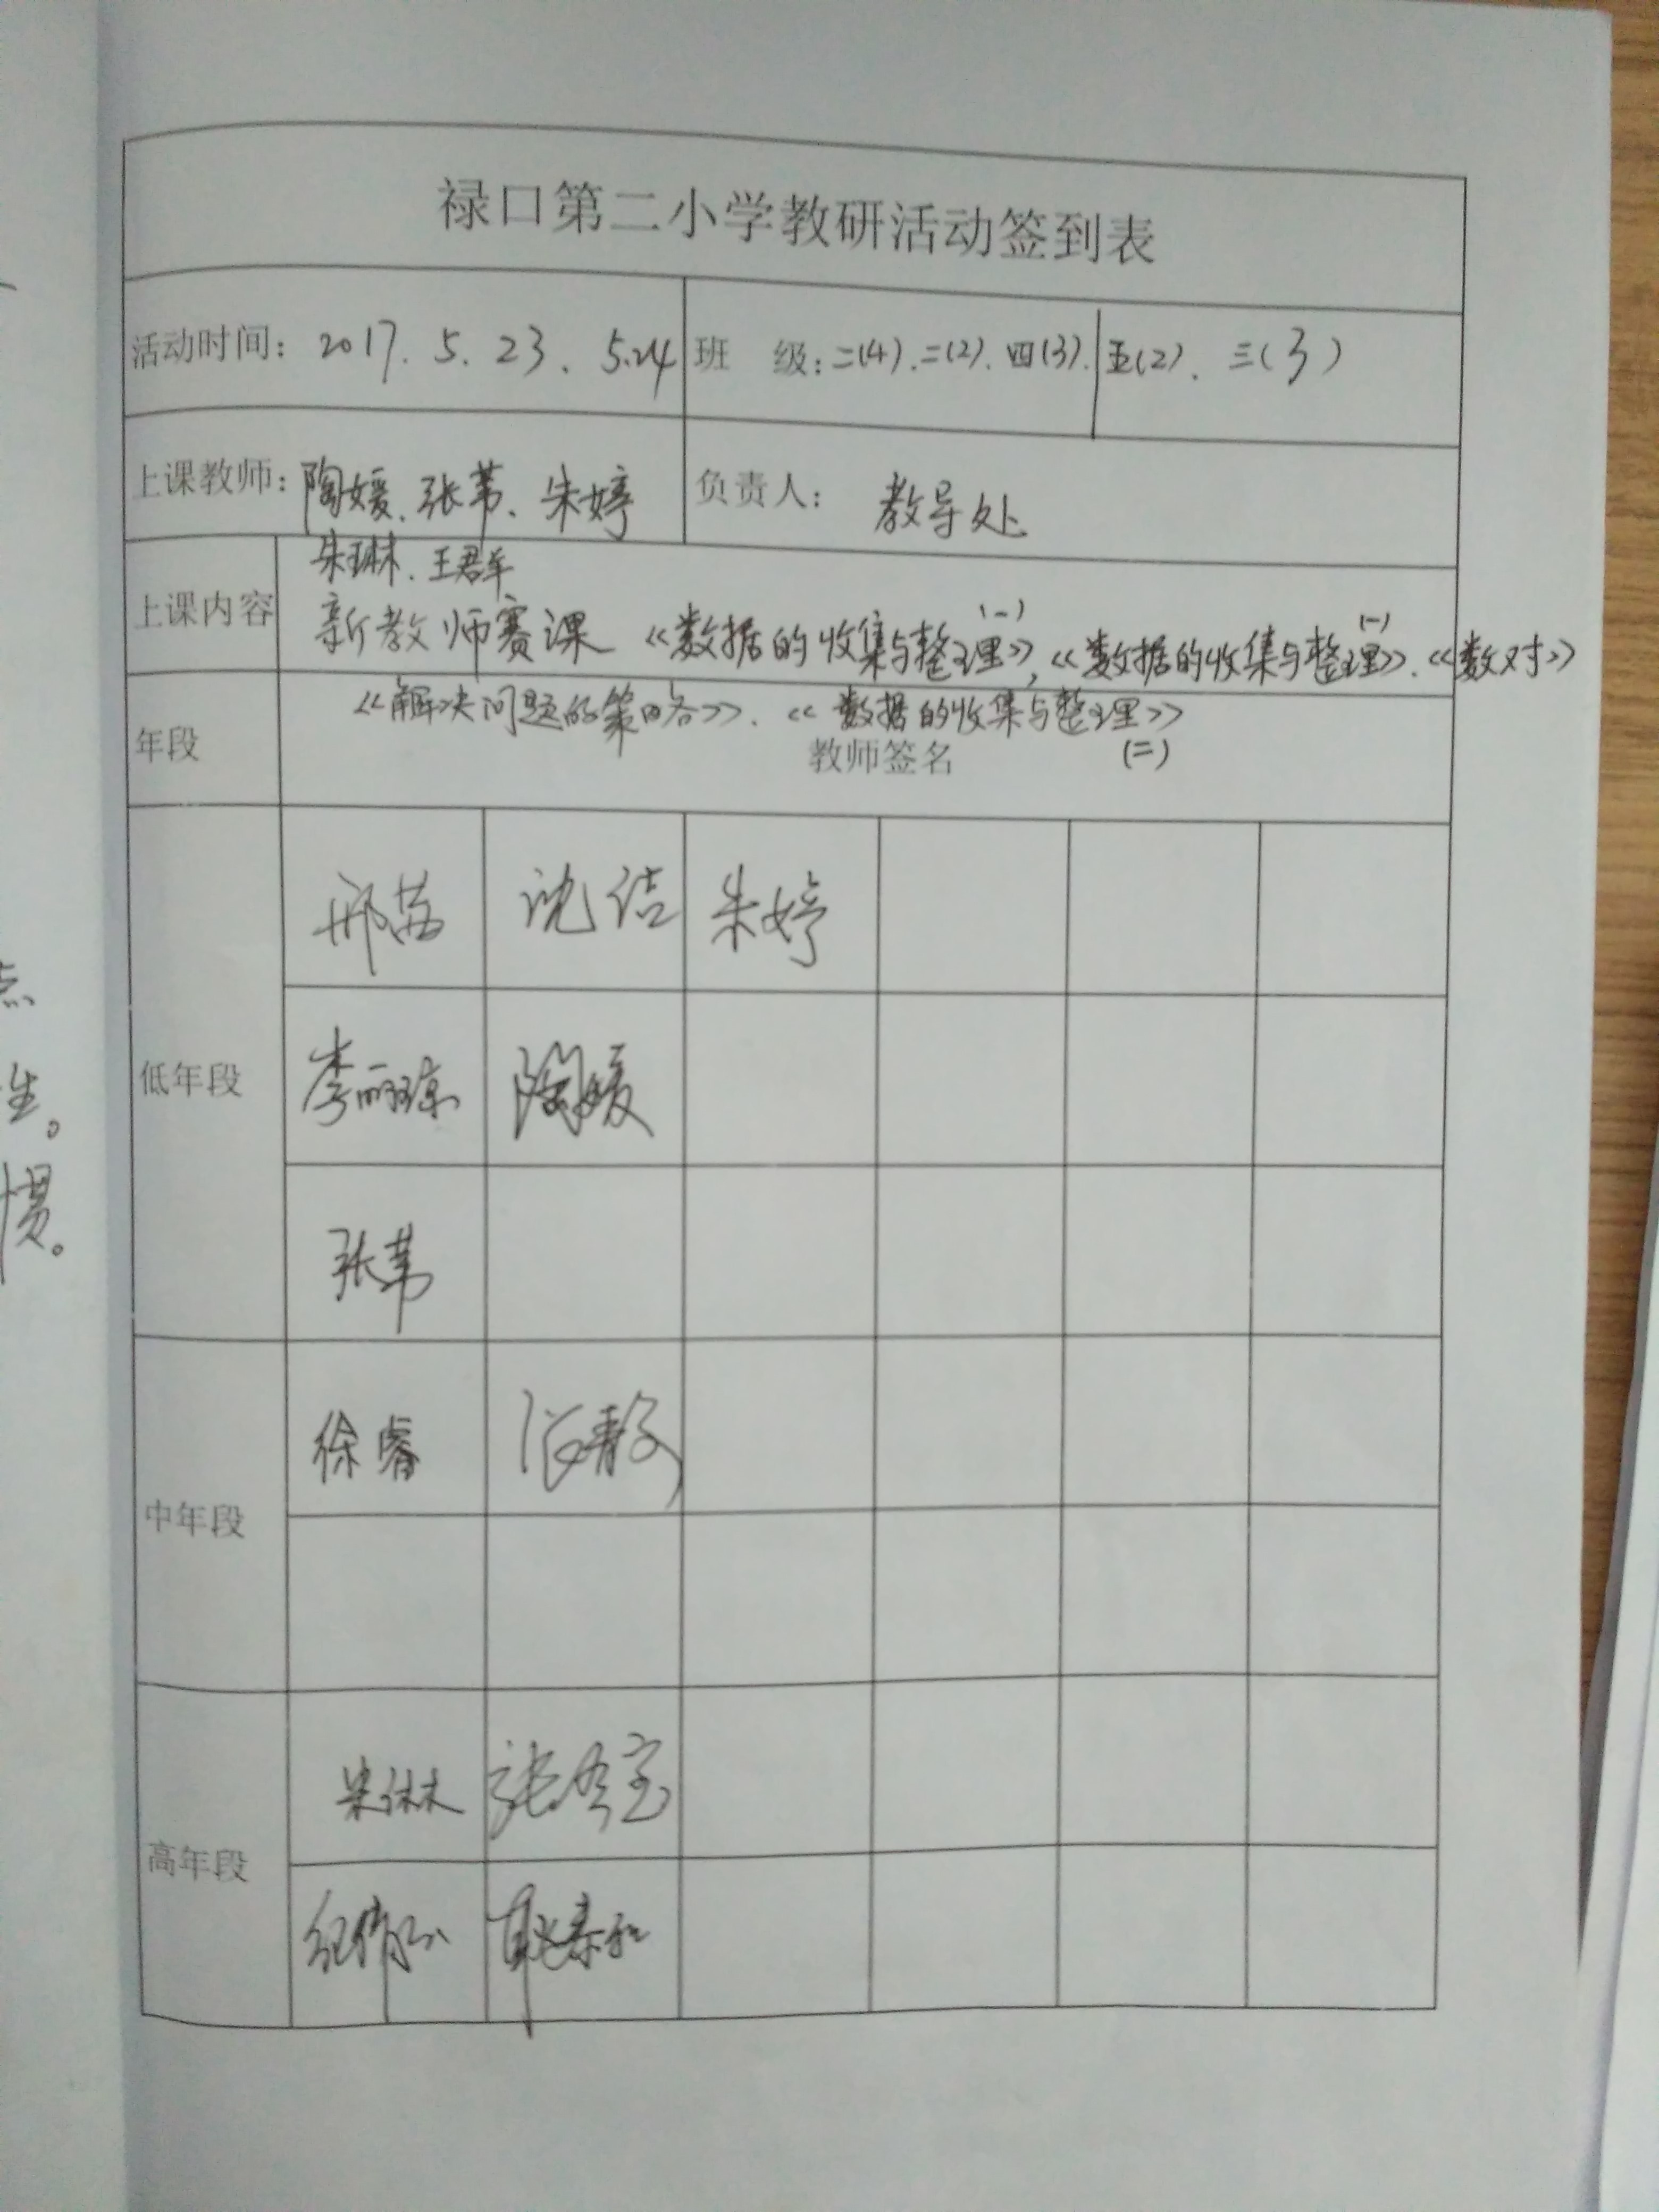 禄口第二小学教研活动签到表
活动时间: 2017.5.23、5.24 班 级:二(4).二(2).四(3).五(2).三(3)
上课教师:陶媛、张苇、朱婷 负责人: 教导处
朱琳、王君车
上课内容 新教师赛课《数据的收集与整理》(一),《数据的收集与整理》(一).《数对》
《解决问题的策略》.《数据的收集与整理》(二)
年段 教师签名
低年段
邢芸 沈洁 朱婷
李丽琼 陶媛
张苇
中年段
徐睿
高年段
朱琳 张冬宝
耿泰和
点
生。
惯。